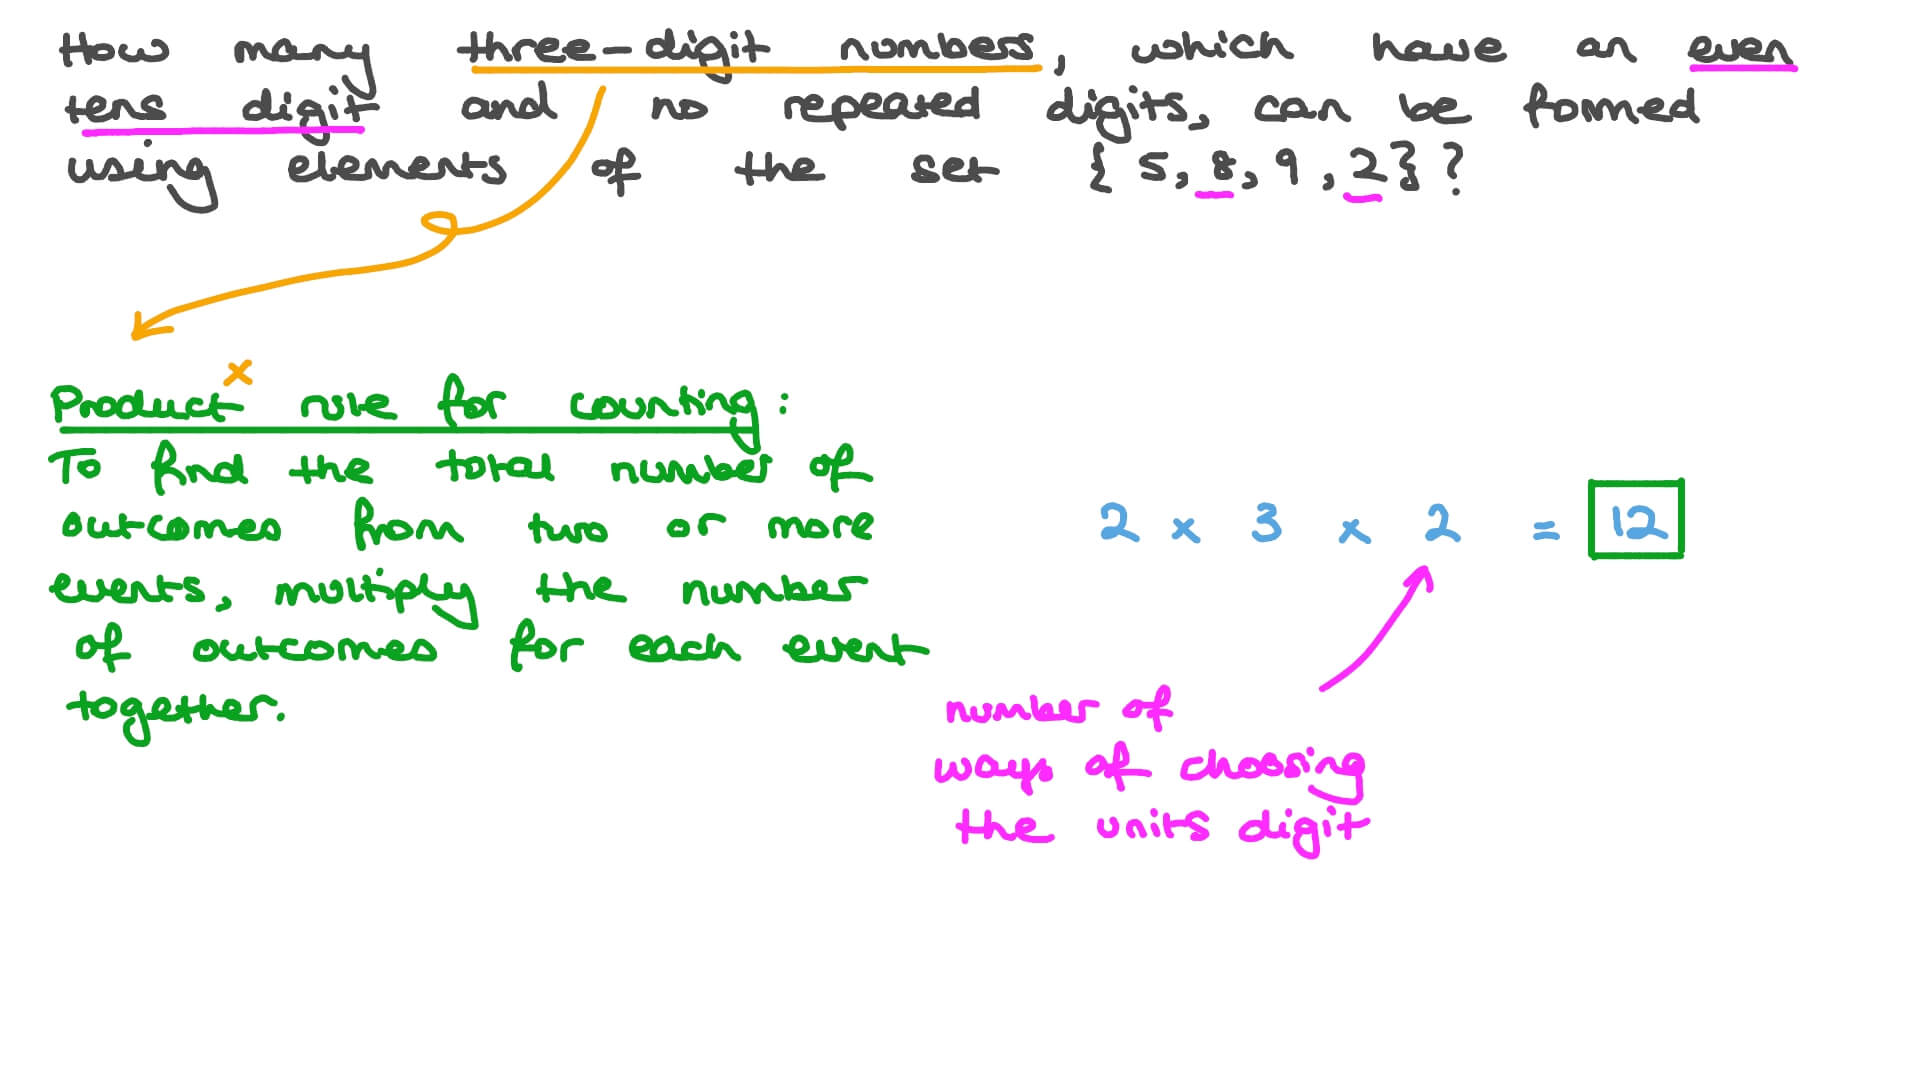 How many three-digit numbers, which have an even
tens digit and no repeated digits, can be formed
using elements of the set {5,8,9,2}?
×
Product rule for counting:
To find the total number of
outcomes from two or more
events, multiply the number
of outcomes for each event
together.
2 × 3 × 2 = 12
number of
ways of choosing
the units digit